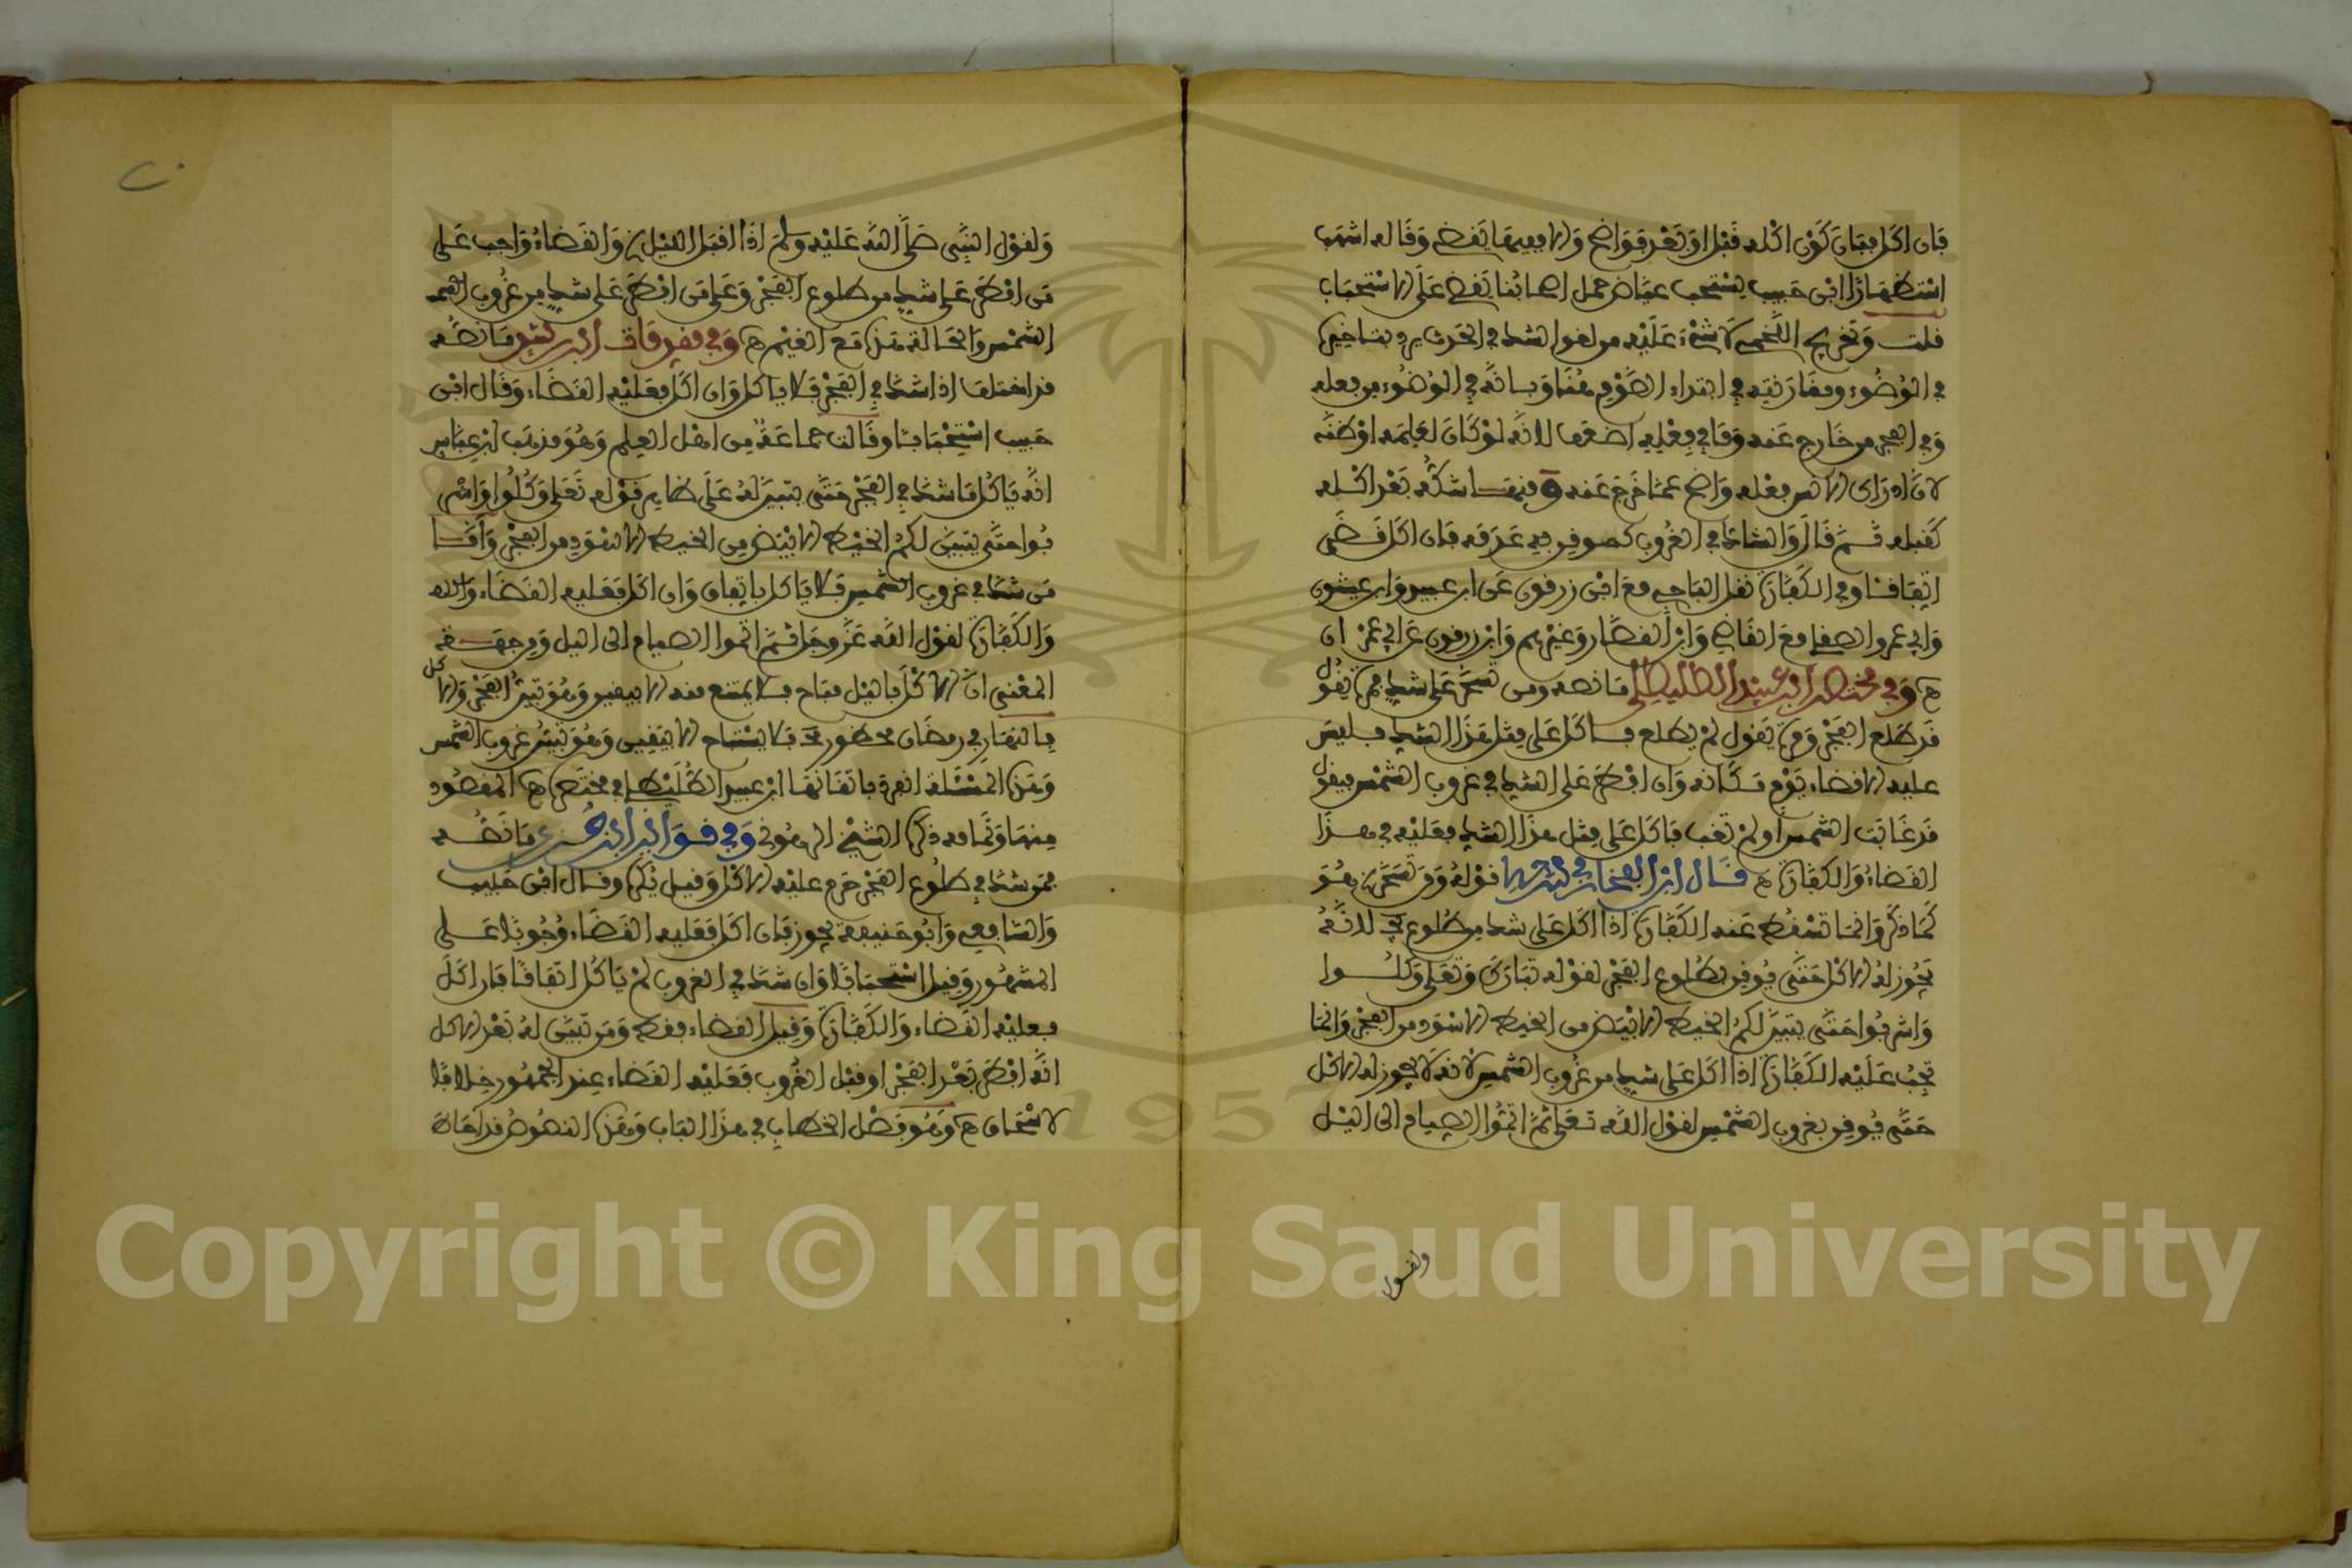 فان اكل فبان كون اكله قبل او بعد فواضح والا ففيها يقضي وقاله اشهب
استظهارا ابن حبيب يستحب عياض حمل اصحابنا يقضي على الاستحباب
قلت وتخريج اللخمي لا شيء عليه من لغو الشك في الحدث يرد بتاخيره
في الوضوء ومقارنته في ابتداء الصوم هنا وبانه في الوضوء من فعله
وفي الفجر من خارج عنه وما في فعله اضعف لانه لو كان لعلمه او ظنه
لان ادراك الانسان فعله واضح عما خرج عنه وفيها شكه بعد اكله
كقبله ثم قال والشاك في الغروب كموقن فيه عدمه فان اكل قضى
اتفاقا وفي الكفارة نقل الباجي مع ابن زرقون عن ابن عبيد وابن عيشون
وابي عمر والصقلي مع القاضي وابن القصار وغيرهم وابن زرقون عن ابي عمران
ه وفي مختصر ابن عبيد الطليطلي ما نصه ومن تسحر على شك مرة يقول
قد طلع الفجر ومرة يقول لم يطلع فاكل على مثل هذا الشك فليس
عليه الا قضاء يوم مكانه وان افطر على الشك في غروب الشمس فيقول
قد غابت الشمس او لم تغب فاكل على مثل هذا الشك فعليه في هذا
القضاء والكفارة ه قال ابن الفخار في شرحها قوله ومن تسحر الخ هو
كما ذكر وانما تسقط عنه الكفارة اذا اكل على شك من طلوع الفجر لانه
يجوز له الاكل حتى يوقن بطلوع الفجر لقوله تبارك وتعلى وكلوا
واشربوا حتى يتبين لكم الخيط الابيض من الخيط الاسود من الفجر وانما
تجب عليه الكفارة اذا اكل على شك من غروب الشمس لانه لا يجوز له الاكل
حتى يوقن بغروب الشمس لقول الله تعلى ثم اتموا الصيام الى اليل
ولقول
ولقول النبي صلى الله عليه وسلم اذا اقبل الليل الخ والقضاء واجب على
من افطر على شك من طلوع الفجر وعلى من افطر على شك من غروب الشمس
الشمس والحالة هذه مع الغيم ه وفي مقدمات ابن رشد ما نصه
قد اختلف اذا شك في الفجر فلا ياكل وان اكل فعليه القضاء وقال ابن
حبيب استحبابا وقالت جماعة من اهل العلم وهو مذهب ابن عباس
انه ياكل ما شك في الفجر حتى يتبين له على ظاهر قوله تعلى وكلوا واشر
بوا حتى يتبين لكم الخيط الابيض من الخيط الاسود من الفجر واما
من شك في غروب الشمس فلا ياكل باتفاق وان اكل فعليه القضاء والله
والكفارة لقول الله عز وجل ثم اتموا الصيام الى اليل ومن جهة
المعنى ان الاكل باليل مباح فلا يمتنع منه الا بيقين وهو تبين الفجر والاكل
بالنهار في رمضان محظور فلا يستباح الا بيقين وهو تبين غروب الشمس
وهذه المسئلة انفرد باتقانها ابن عبيد الطليطلي في مختصره ه المقصود
منها وتمامه ذكره الشيخ الرهوني وفي قوانين ابن جزي ما نصه
فمن شك في طلوع الفجر حرم عليه الاكل وقيل يكره وقال ابن حبيب
والشافعي وابو حنيفة يجوز فان اكل فعليه القضاء وجوبا على
المشهور وقيل استحبابا وان شك في الغروب لم ياكل اتفاقا فان اكل
فعليه القضاء والكفارة وقيل القضاء فقط ومن تبين له بعد الاكل
انه افطر بعد الفجر او قبل الغروب فعليه القضاء عند الجمهور خلافا
لاسحاق ه وهو فصل الخطاب في هذا الباب وهذه النصوص قد احاط
Copyright © King Saud University
1957